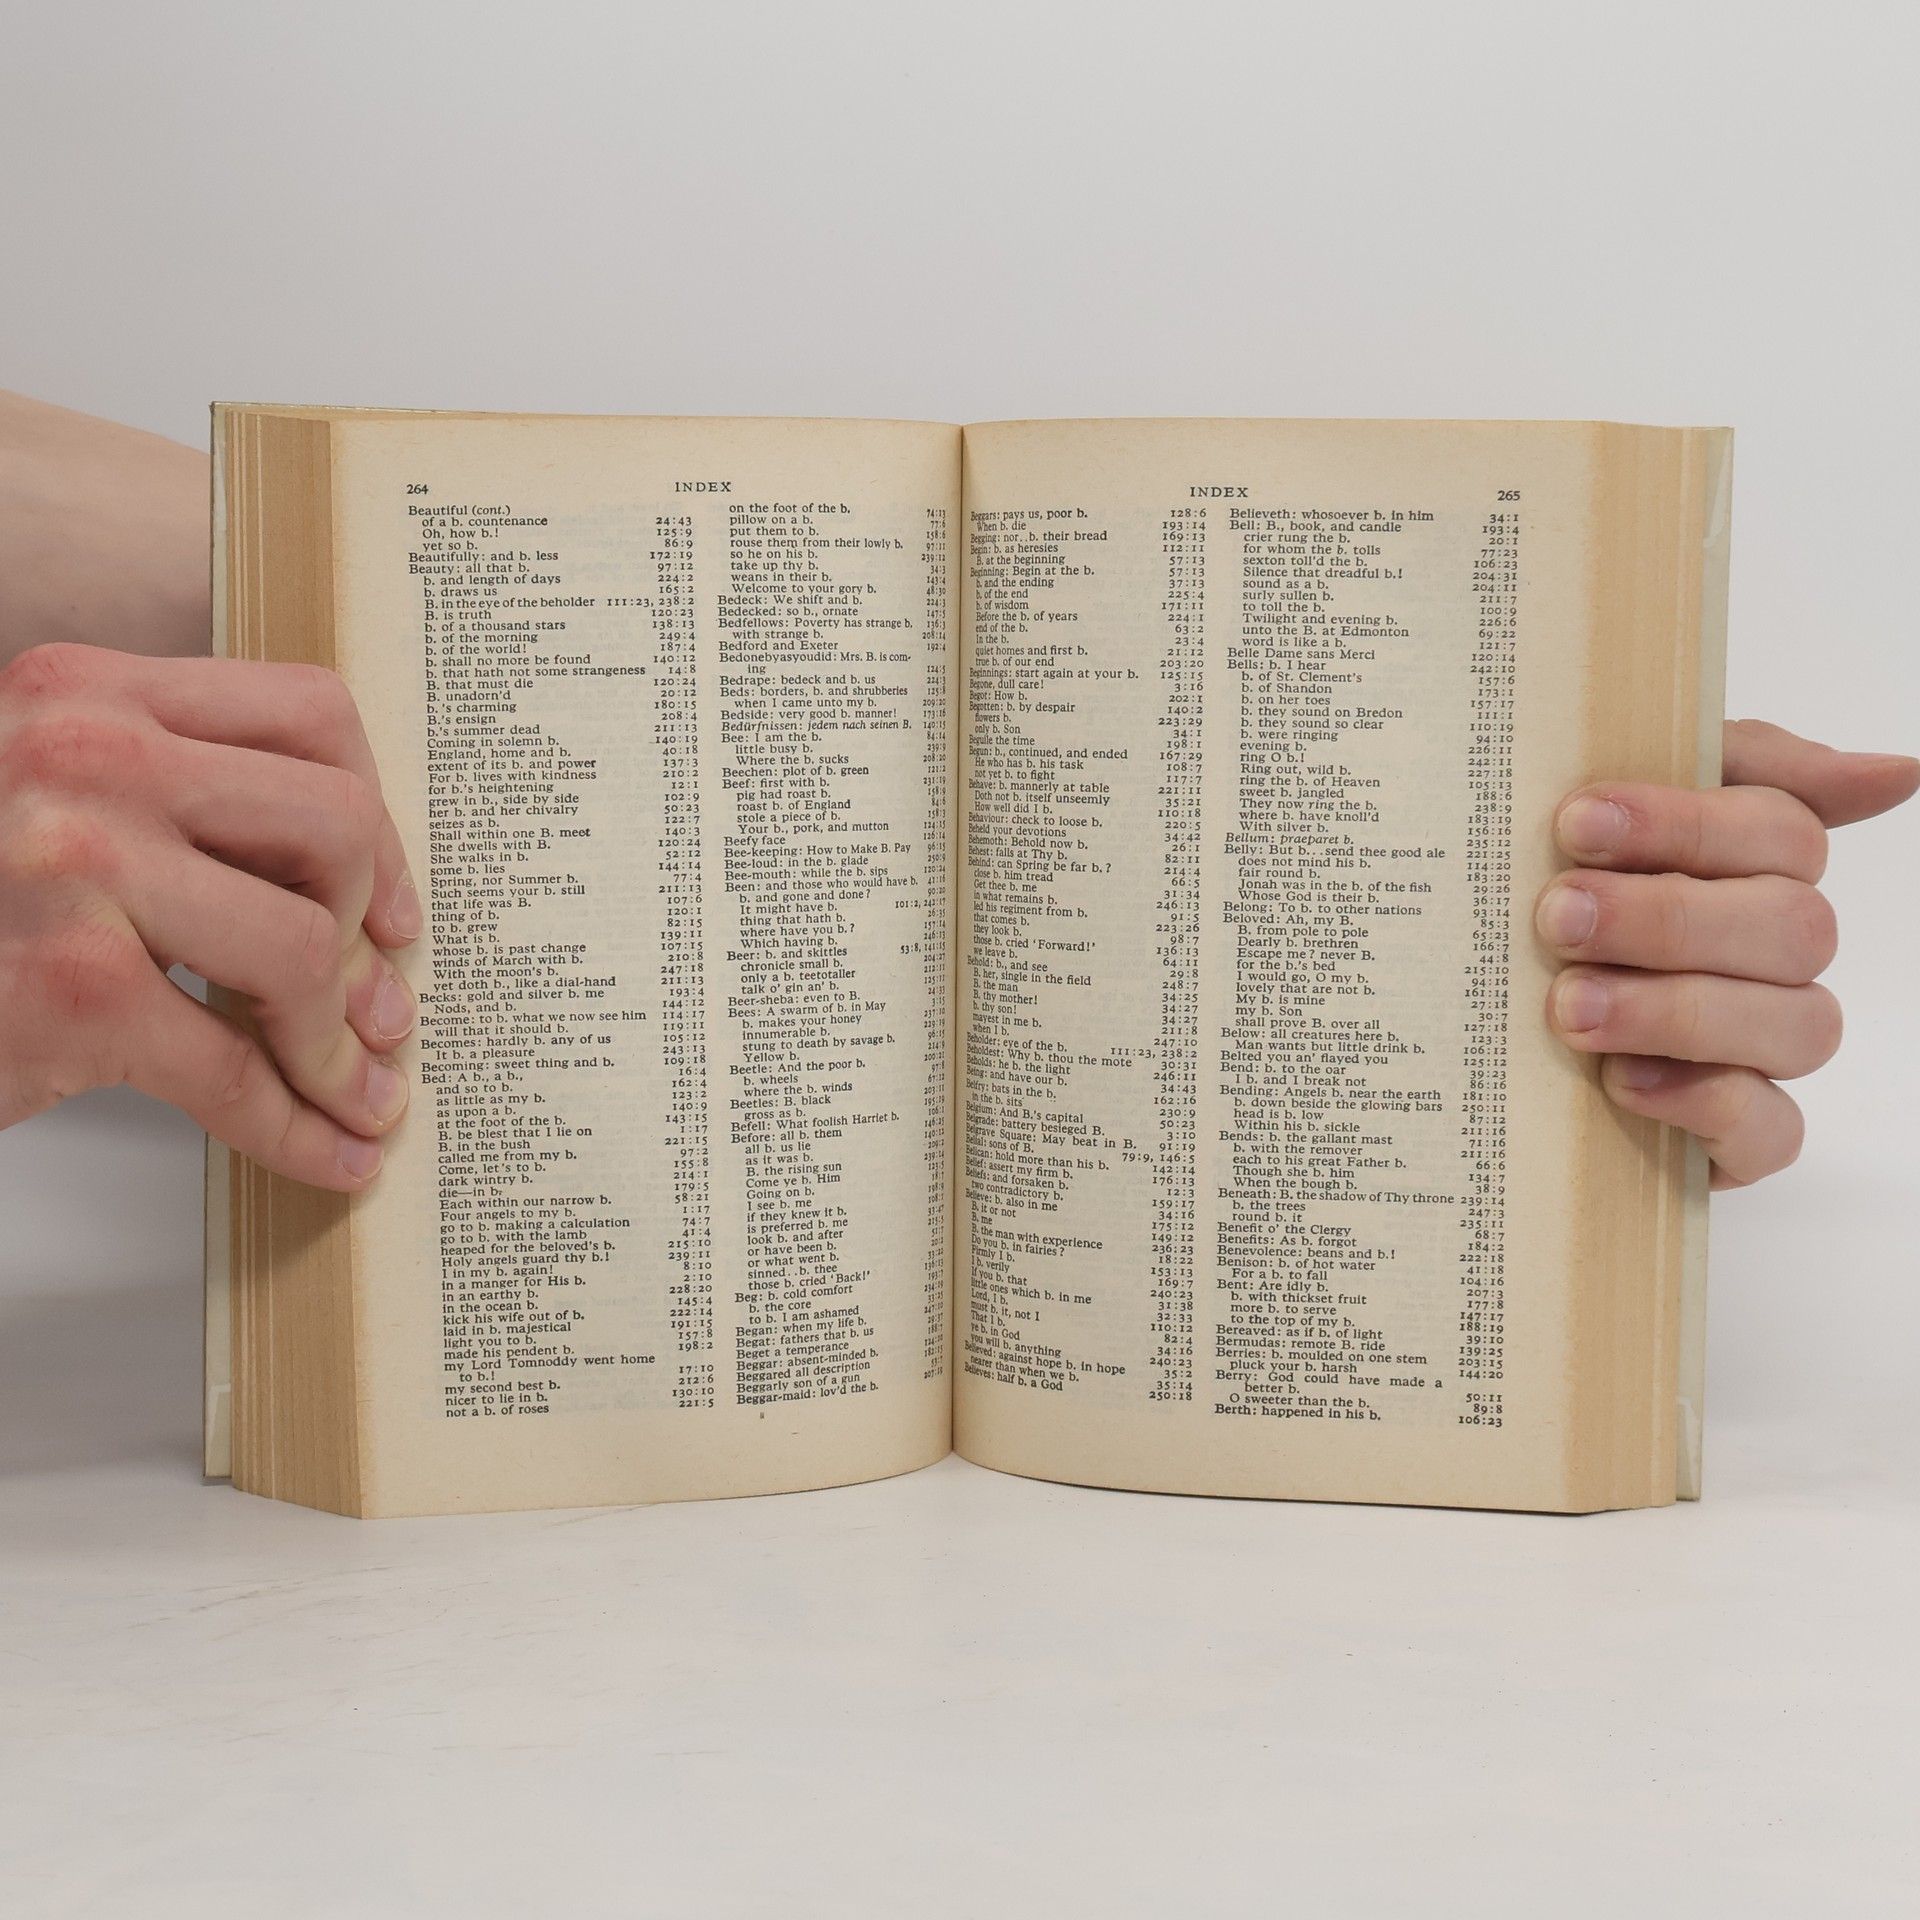 264
INDEX
Beautiful (cont.)
of a b. countenance 24:43
Oh, how b.! 125:9
yet so b. 86:9
Beautifully: and b. less 172:19
Beauty: all that b. 97:12
b. and length of days 224:2
b. draws us 165:2
B. in the eye of the beholder 111:23, 238:2
B. is truth 120:23
b. of a thousand stars 138:13
b. of the morning 249:4
b. of the world! 187:4
b. shall no more be found 140:12
b. that hath not some strangeness 14:8
B. that must die 120:24
B. unadorn'd 20:12
b.'s charming 180:15
B.'s ensign 208:4
b.'s summer dead 211:13
Coming in solemn b. 140:19
England, home and b. 40:18
extent of its b. and power 137:3
For b. lives with kindness 210:2
for b.'s heightening 12:1
grew in b., side by side 102:9
her b. and her chivalry 50:23
seizes as b. 122:7
Shall within one B. meet 140:3
She dwells with B. 120:24
She walks in b. 52:12
some b. lies 144:14
Spring, nor Summer b. 77:4
Such seems your b. still 211:13
that life was B. 107:6
thing of b. 120:1
to b. grew 82:15
What is b. 139:11
whose b. is past change 107:15
winds of March with b. 210:8
With the moon's b. 247:18
yet doth b., like a dial-hand 211:13
Becks: gold and silver b. me 193:4
Nods, and b. 144:12
Become: to b. what we now see him 114:17
will that it should b. 119:11
Becomes: hardly b. any of us 105:12
It b. a pleasure 243:13
Becoming: sweet thing and b. 109:18
Bed: A b., a b., 16:4
and so to b. 162:4
as little as my b. 123:2
as upon a b. 140:9
at the foot of the b. 143:15
B. be blest that I lie on 1:17
B. in the bush 221:15
called me from my b. 97:2
Come, let's to b. 155:8
dark wintry b. 214:1
die—in b. 179:5
Each within our narrow b. 58:21
Four angels to my b. 1:17
go to b. making a calculation 74:7
go to b. with the lamb 41:4
heaped for the beloved's b. 215:10
Holy angels guard thy b.! 239:11
I in my b. again! 8:10
in a manger for His b. 2:10
in an earthy b. 228:20
in the ocean b. 145:4
kick his wife out of b. 222:14
laid in b. majestical 191:15
light you to b. 157:8
made his pendent b. 198:2
my Lord Tomnoddy went home
to b.! 17:10
my second best b. 212:6
nicer to lie in b. 130:10
not a b. of roses 221:5
on the foot of the b. 74:13
pillow on a b. 77:6
put them to b. 158:6
rouse them from their lowly b. 97:11
so he on his b. 239:12
take up thy b. 34:3
weans in their b. 143:4
Welcome to your gory b. 48:30
Bedeck: We shift and b. 224:3
Bedecked: so b., ornate 147:5
Bedfellows: Poverty has strange b. 136:5
with strange b. 208:14
Bedford and Exeter 192:4
Bedonebyasyoudid: Mrs. B. is com-
ing 124:5
Bedrape: bedeck and b. us 224:3
Beds: borders, b. and shrubberies 125:8
when I came unto my b. 209:20
Bedside: very good b. manner! 173:16
Bedürfnissen: jedem nach seinen B. 140:15
Bee: I am the b. 84:14
little busy b. 239:9
Where the b. sucks 208:20
Beechen: plot of b. green 121:2
Beef: first with b. 231:19
pig had roast b. 158:9
roast b. of England 84:6
stole a piece of b. 158:3
Your b., pork, and mutton 124:15
Beefy face 126:14
Bee-keeping: How to Make B. Pay 96:15
Bee-loud: in the b. glade 250:9
Bee-mouth: while the b. sips 120:24
Been: and those who would have b. 41:16
b. and gone and done? 90:20
It might have b. 101:2, 242:17
thing that hath b. 26:35
where have you b.? 157:14
Which having b. 246:13
Beer: b. and skittles 53:8, 141:15
chronicle small b. 204:27
only a b. teetotaller 212:11
talk o' gin an' b. 125:11
Beer-sheba: even to B. 24:33
Bees: A swarm of b. in May 3:15
b. makes your honey 237:10
innumerable b. 229:19
stung to death by savage b. 96:15
Yellow b. 214:8
Beetle: And the poor b. 200:21
b. wheels 97:8
where the b. winds 67:12
Beetles: B. black 203:11
gross as b. 195:19
Befell: What foolish Harriet b. 106:1
Before: all b. them 146:25
all b. us lie 140:12
as it was b. 209:2
B. the rising sun 239:14
Come ye b. Him 123:5
Going on b. 18:7
I see b. me
if they knew it b. 108:7
is preferred b. me 33:47
look b. and after 215:5
or have been b. 51:7
or what went b. 20:2
sinned . . b. thee 33:22
those b. cried 'Back!' 136:13
Beg: b. cold comfort 193:7
b. the core
to b. I am ashamed 33:25
Began: when my life b. 247:10
Begat: fathers that b. us 29:37
Beget a temperance 188:7
Beggar: absent-minded b. 124:20
Beggared all description 182:15
Beggarly son of a gun 53:7
Beggar-maid: lov'd the b. 207:18
INDEX
265
Beggars: pays us, poor b. 128:6
When b. die 193:14
Begging: nor. . b. their bread 169:13
Begin: b. as heresies 112:11
B. at the beginning 57:13
Beginning: Begin at the b. 57:13
b. and the ending 37:13
b. of the end 225:4
b. of wisdom 171:11
Before the b. of years 224:1
end of the b. 63:2
In the b. 23:4
quiet homes and first b. 21:12
true b. of our end 203:20
Beginnings: start again at your b. 125:15
Begone, dull care! 3:16
Begot: How b. 202:1
Begotten: b. by despair 140:2
flowers b. 223:29
only b. Son 34:1
Beguile the time 198:1
Begun: b., continued, and ended 167:29
He who has b. his task 108:7
not yet b. to fight 117:7
Behave: b. mannerly at table 221:11
Doth not b. itself unseemly 35:21
How well did I b. 110:18
Behaviour: check to loose b. 220:5
Beheld your devotions 34:42
Behemoth: Behold now b. 26:1
Behest: falls at Thy b. 82:11
Behind: can Spring be far b.? 214:4
close b. him tread 66:5
Get thee b. me 31:34
in what remains b. 246:13
led his regiment from b. 91:5
that comes b. 223:26
they look b. 98:7
those b. cried 'Forward!' 136:13
we leave b. 64:11
Behold: b., and see 29:8
B. her, single in the field 248:7
B. the man 34:25
B. thy mother! 34:27
b. thy son! 34:27
mayest in me b. 211:8
when I b. 247:10
Beholder: eye of the b. 111:23, 238:2
Beholdest: Why b. thou the mote 30:31
Beholds: he b. the light 246:11
Being: and have our b. 34:43
Belfry: bats in the b. 162:16
in the b. sits 230:9
Belgium: And B.'s capital 50:23
Belgrade: battery besieged B. 3:10
Belgrave Square: May beat in B. 91:19
Belial: sons of B. 79:9, 146:5
Belican: hold more than his b. 142:14
Belief: assert my firm b. 176:13
Beliefs: and forsaken b. 12:3
two contradictory b. 159:17
Believe: b. also in me 34:16
B. it or not 175:12
B. me 149:12
B. the man with experience 236:23
Do you b. in fairies? 18:22
Firmly I b. 153:13
I b. verily 169:7
If you b. that 240:23
little ones which b. in me 31:38
Lord, I b. 32:33
must b. it, not I 110:12
That I b. 82:4
ye b. in God 34:16
you will b. anything 240:23
Believed: against hope b. in hope 35:2
nearer than when we b. 35:14
Believes: half b. a God 250:18
Believeth: whosoever b. in him 34:1
Bell: B., book, and candle 193:4
crier rung the b. 20:1
for whom the b. tolls 77:23
sexton toll'd the b. 106:23
Silence that dreadful b.! 204:31
sound as a b. 204:11
surly sullen b. 211:7
to toll the b. 100:9
Twilight and evening b. 226:6
unto the B. at Edmonton 69:22
word is like a b. 121:7
Belle Dame sans Merci 120:14
Bells: b. I hear 242:10
b. of St. Clement's 157:6
b. of Shandon 173:1
b. on her toes 157:17
b. they sound on Bredon 111:1
b. they sound so clear 110:19
b. were ringing 94:10
evening b. 226:11
ring O b.! 242:11
Ring out, wild b. 227:18
ring the b. of Heaven 105:13
sweet b. jangled 188:6
They now ring the b. 238:9
where b. have knoll'd 183:19
With silver b. 156:16
Bellum: praeparet b. 235:12
Belly: But b. . . send thee good ale 221:25
does not mind his b. 114:20
fair round b. 183:20
Jonah was in the b. of the fish 29:26
Whose God is their b. 36:17
Belong: To b. to other nations 93:14
Beloved: Ah, my B. 85:3
B. from pole to pole 65:23
Dearly b. brethren 166:7
Escape me? never B. 44:8
for the b.'s bed 215:10
I would go, O my b. 94:16
lovely that are not b. 161:14
My b. is mine 27:18
my b. Son 30:7
shall prove B. over all 127:18
Below: all creatures here b. 123:3
Man wants but little drink b. 106:12
Belted you an' flayed you 125:12
Bend: b. to the oar 39:23
I b. and I break not 86:16
Bending: Angels b. near the earth 181:10
b. down beside the glowing bars 250:11
head is b. low 87:12
Within his b. sickle 211:16
Bends: b. the gallant mast 71:16
b. with the remover 211:16
each to his great Father b. 66:6
Though she b. him 134:7
When the bough b. 38:9
Beneath: B. the shadow of Thy throne 239:14
b. the trees 247:3
round b. it 235:11
Benefit o' the Clergy 68:7
Benefits: As b. forgot 184:2
Benevolence: beans and b.! 222:18
Benison: b. of hot water 41:18
For a b. to fall 104:16
Bent: Are idly b. 207:3
b. with thickset fruit 177:8
more b. to serve 147:17
to the top of my b. 188:19
Bereaved: as if b. of light 39:10
Bermudas: remote B. ride 139:25
Berries: b. moulded on one stem 203:15
pluck your b. harsh 144:20
Berry: God could have made a
better b. 50:11
O sweeter than the b. 89:8
Berth: happened in his b. 106:23